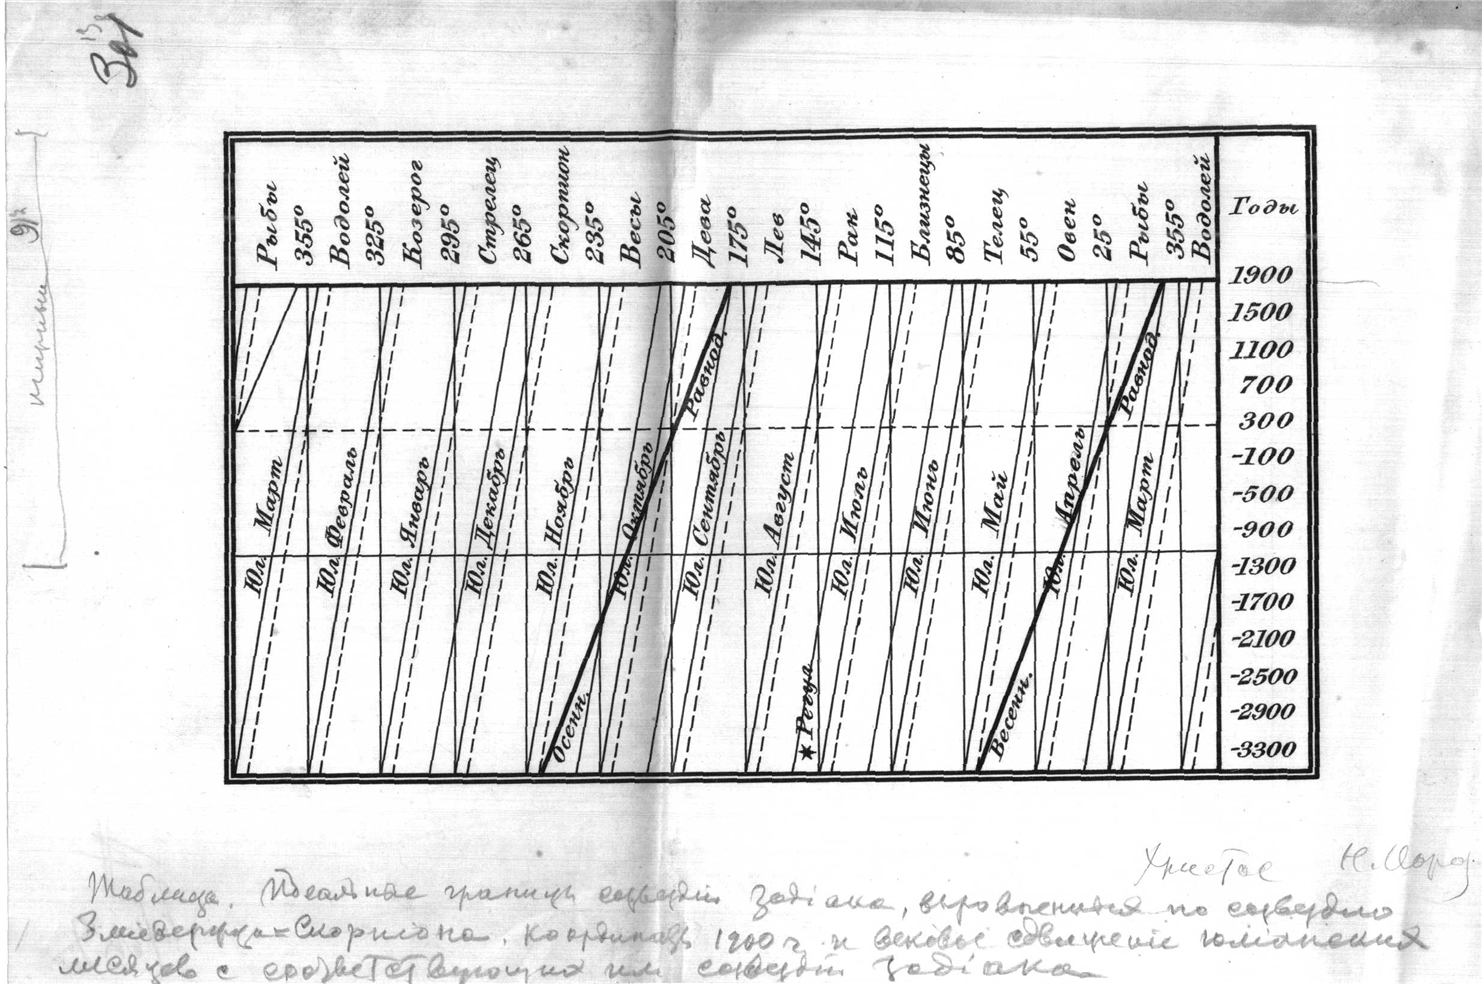 301
Рыбы
355°
Водолей
325°
Козерог
295°
Стрелец
265°
Скорпион
235°
Весы
205°
Дева
175°
Лев
145°
Рак
115°
Близнецы
85°
Телец
55°
Овен
25°
Рыбы
355°
Водолей
Годы
1900
1500
1100
700
300
-100
-500
-900
-1300
-1700
-2100
-2500
-2900
-3300
Юл. Март
Юл. Февраль
Юл. Январь
Юл. Декабрь
Юл. Ноябрь
Юл. Октябрь
Юл. Сентябрь
Юл. Август
Юл. Июль
Юл. Июнь
Юл. Май
Юл. Апрель
Юл. Март
Осенн. Равнод.
Весенн. Равнод.
Регул
Христос Н. Мороз.
Таблица. Идеальные границы созвездій Задіака, выровненныя по созвездію
Змiедержца-Скорпиона. Координаты 1900 г. и вековое сдвиженіе юліанских
месяцев с соответствующих им созвездій Задіака